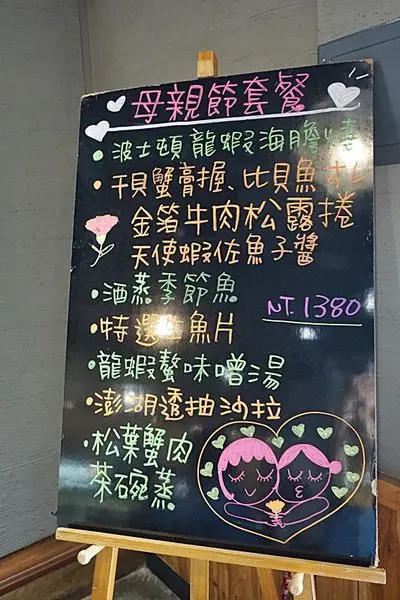 母親節套餐
波士頓龍蝦海膽燒
干貝蟹膏握、比貝魚
金箔牛肉松露捲
天使蝦佐魚子醬
酒蒸季節魚
NT.1380
特選生魚片
龍蝦螯味噌湯
澎湖透抽沙拉
松葉蟹肉
茶碗蒸